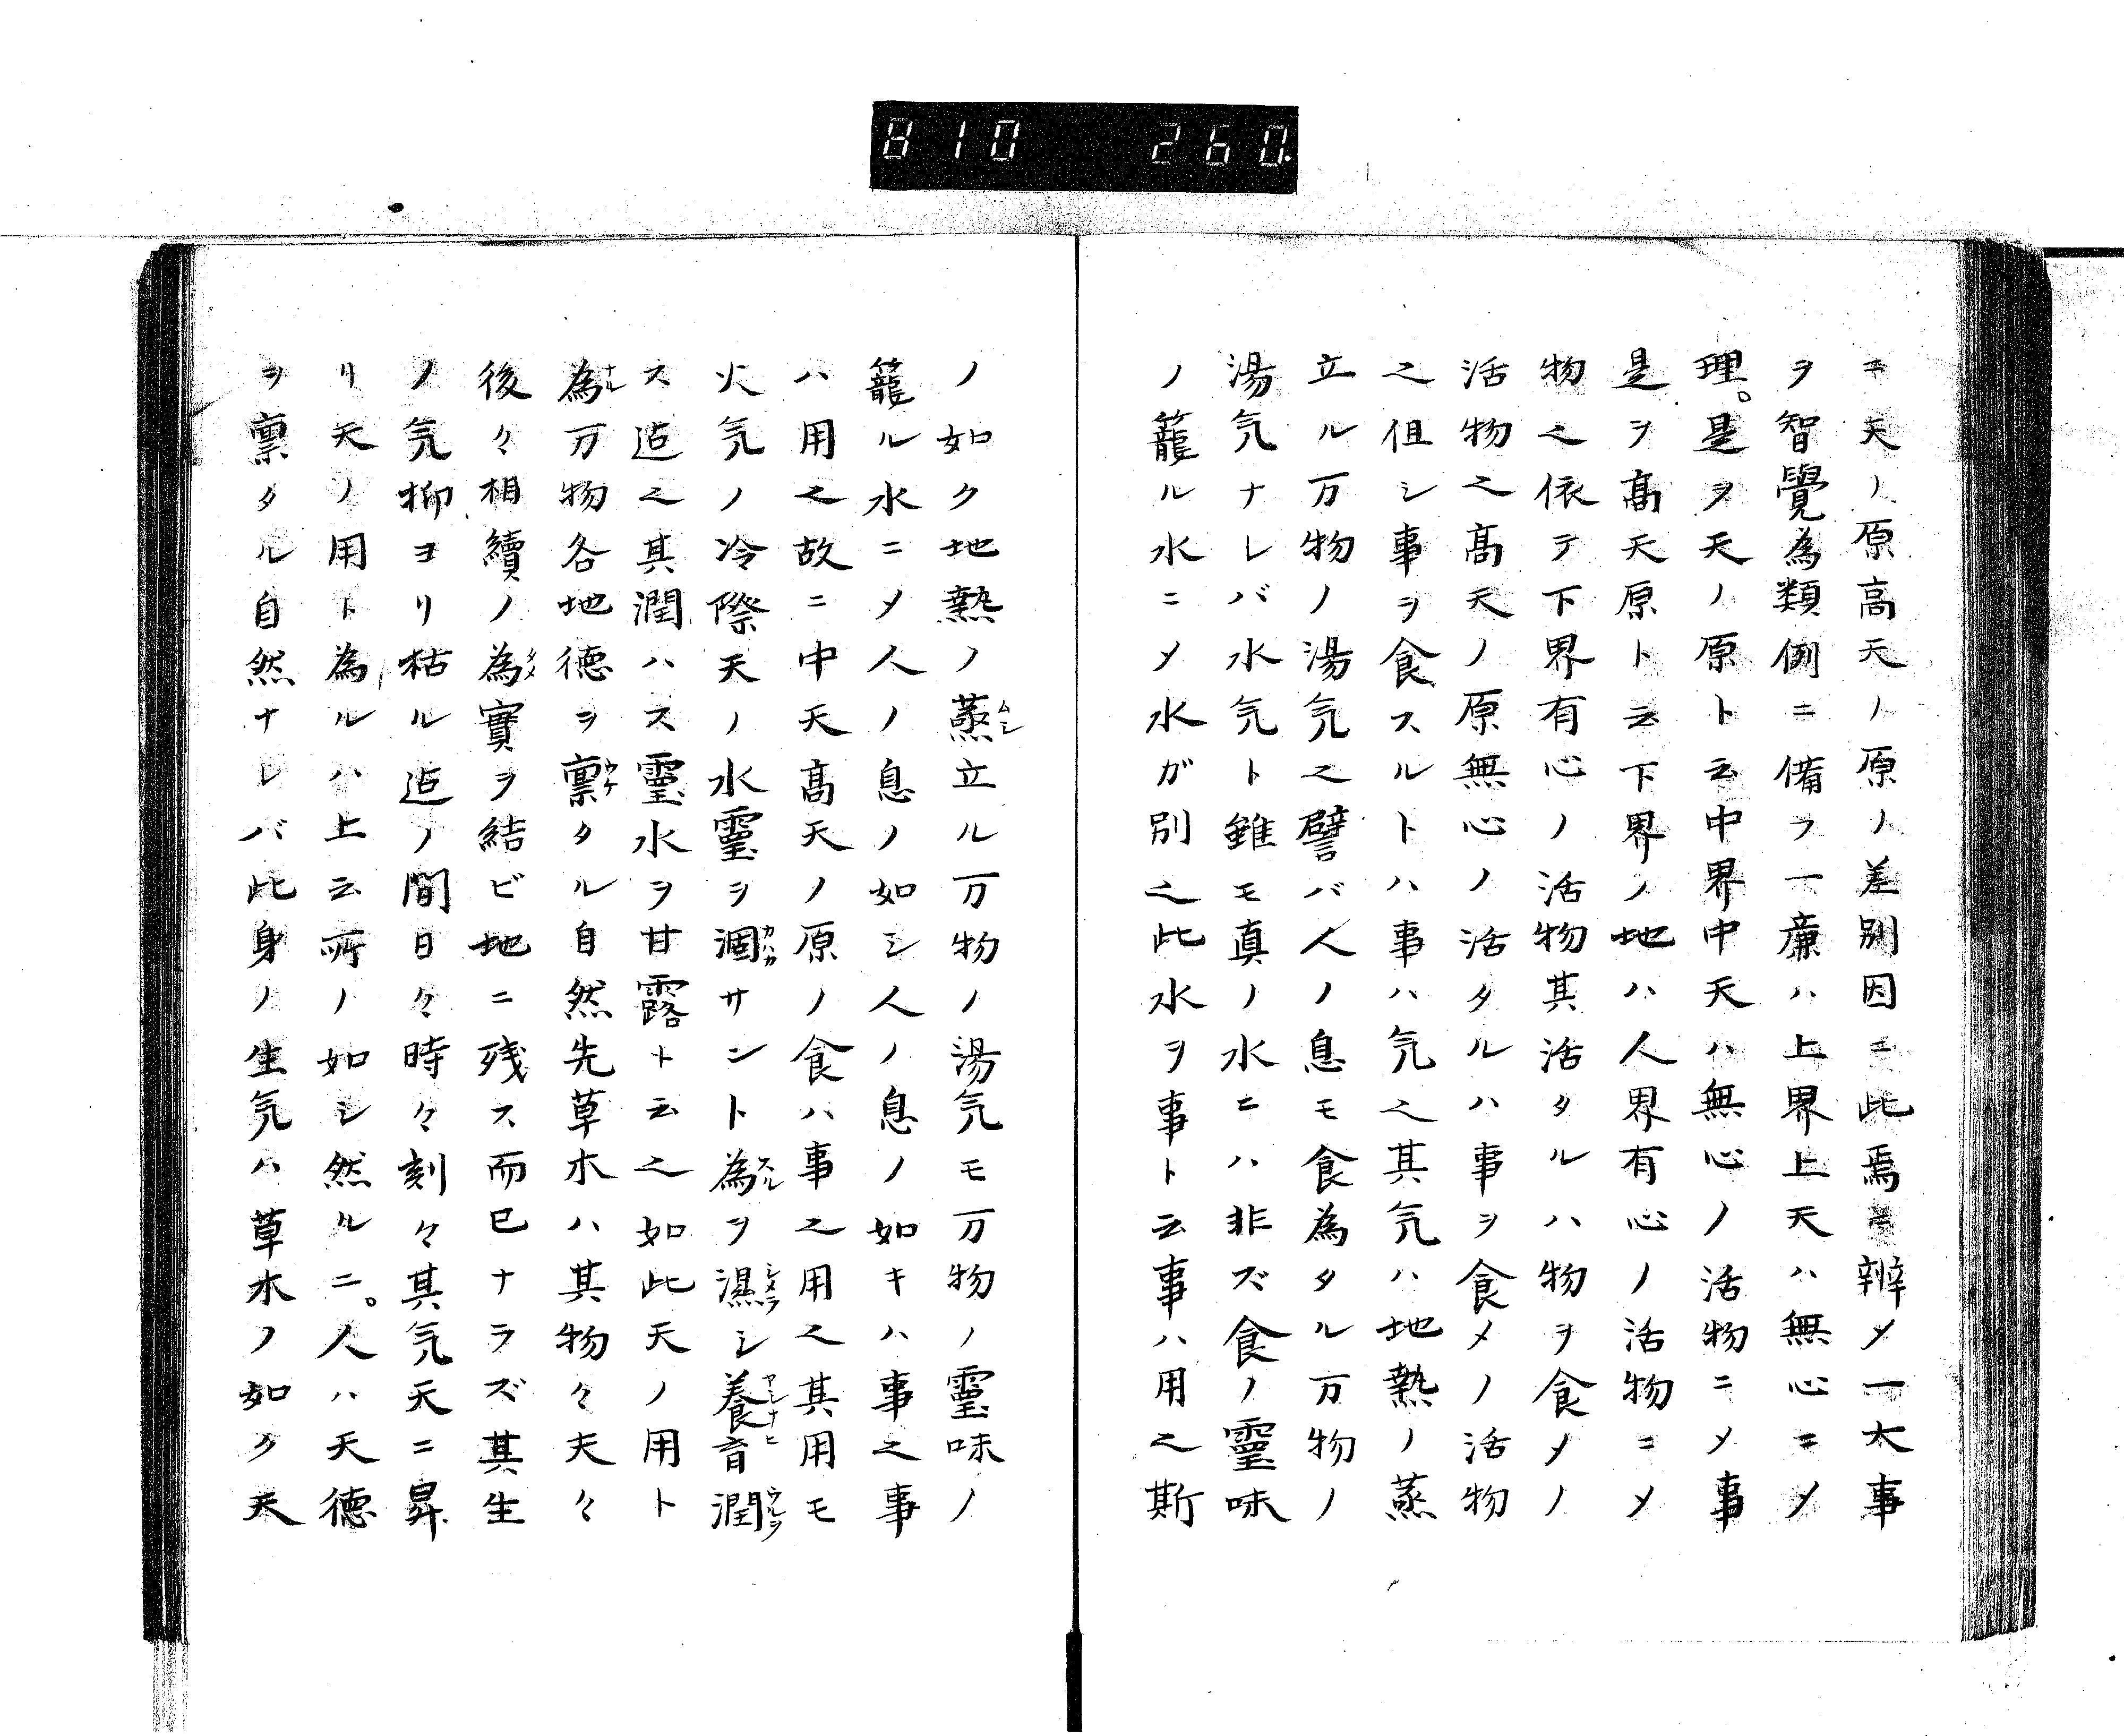 810 260.
ニ天ノ原高天ノ原ノ差別因ニ此焉ニ辨メ一大事
ヲ智覺為類倒ニ備ヲ一廉ハ上界上天ハ無心ニメ
理。是ヲ天ノ原ト云中界中天ハ無心ノ活物ニメ事
是ヲ髙天原ト云下界ノ地ハ人界有心ノ活物ニメ
物之依テ下界有心ノ活物其活タルハ物ヲ食メノ
活物之髙天ノ原無心ノ活タルハ事ヲ食メノ活物
之伹シ事ヲ食スルトハ事ハ気之其気ハ地熱ノ蒸
立ル万物ノ湯気之譬バ人ノ息モ食為タル万物ノ
湯気ナレバ水気ト雖モ真ノ水ニハ非ズ食ノ靈味
ノ籠ル水ニメ水ガ別之此水ヲ事ト云事ハ用之斯
ノ如ク地熱ノ蒸ムシ立ル万物ノ湯気モ万物ノ靈味ノ
籠ル水ニメ人ノ息ノ如シ人ノ息ノ如キハ事之事
ハ用之故ニ中天髙天ノ原ノ食ハ事之用之其用モ
火気ノ冷際天ノ水靈ヲ涸カハカサント為スルヲ濕シメラシ養ヤシナヒ育潤ウルヲ
ス迠之其潤ハス靈水ヲ甘露ト云之如此天ノ用ト
為ナル万物各地徳ヲ禀ウケタル自然先草木ハ其物々夫々
後々相續ノ為タメ實ヲ結ビ地ニ残ス而巳ナラズ其生
ノ気抑ヨリ枯ル迠ノ間日々時々刻々其気天ニ昇
リ天ノ用ト為ルハ上云所ノ如シ然ルニ。人ハ天德
ヲ禀タル自然ナレバ此身ノ生気ハ草木ノ如ク天